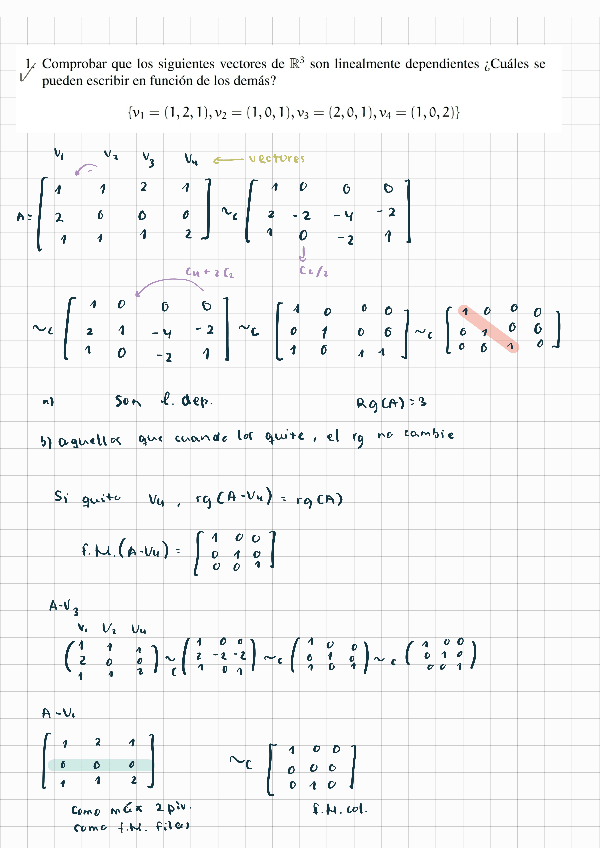 1. Comprobar que los siguientes vectores de ℝ³ son linealmente dependientes ¿Cuáles se
pueden escribir en función de los demás?
{v₁ = (1, 2, 1), v₂ = (1, 0, 1), v₃ = (2, 0, 1), v₄ = (1, 0, 2)}
V₁ V₂ V₃ V₄ ← vectores
A = [ 1 1 2 1 ] ~c [ 1 0 0 0 ]
[ 2 0 0 0 ] [ 2 -2 -4 -2 ]
[ 1 1 1 2 ] [ 1 0 -2 1 ]
C₄ + 2C₂ C₂/2
~c [ 1 0 0 0 ] ~c [ 1 0 0 0 ] ~c [ 1 0 0 0 ]
[ 2 1 -4 -2 ] [ 0 1 0 0 ] [ 0 1 0 0 ]
[ 1 0 -2 1 ] [ 1 0 1 1 ] [ 0 0 1 0 ]
a) Son l. dep. Rg(A) = 3
b) aquellos que cuando los quite, el rg no cambie
Si quito V₄, rg(A-V₄) = rg(A)
f.N.(A-V₄) = [ 1 0 0 ]
[ 0 1 0 ]
[ 0 0 1 ]
A-V₃
V₁ V₂ V₄
( 1 1 1 ) ~c ( 1 0 0 ) ~c ( 1 0 0 ) ~c ( 1 0 0 )
( 2 0 0 ) ( 2 -2 -2 ) ( 0 1 0 ) ( 0 1 0 )
( 1 1 2 ) ( 1 0 1 ) ( 1 0 1 ) ( 0 0 1 )
A-V₁
[ 1 2 1 ] ~c [ 1 0 0 ]
[ 0 0 0 ] [ 0 0 0 ]
[ 1 1 2 ] [ 0 1 0 ]
como máx 2 piv. f.N. col.
como f.N. filas